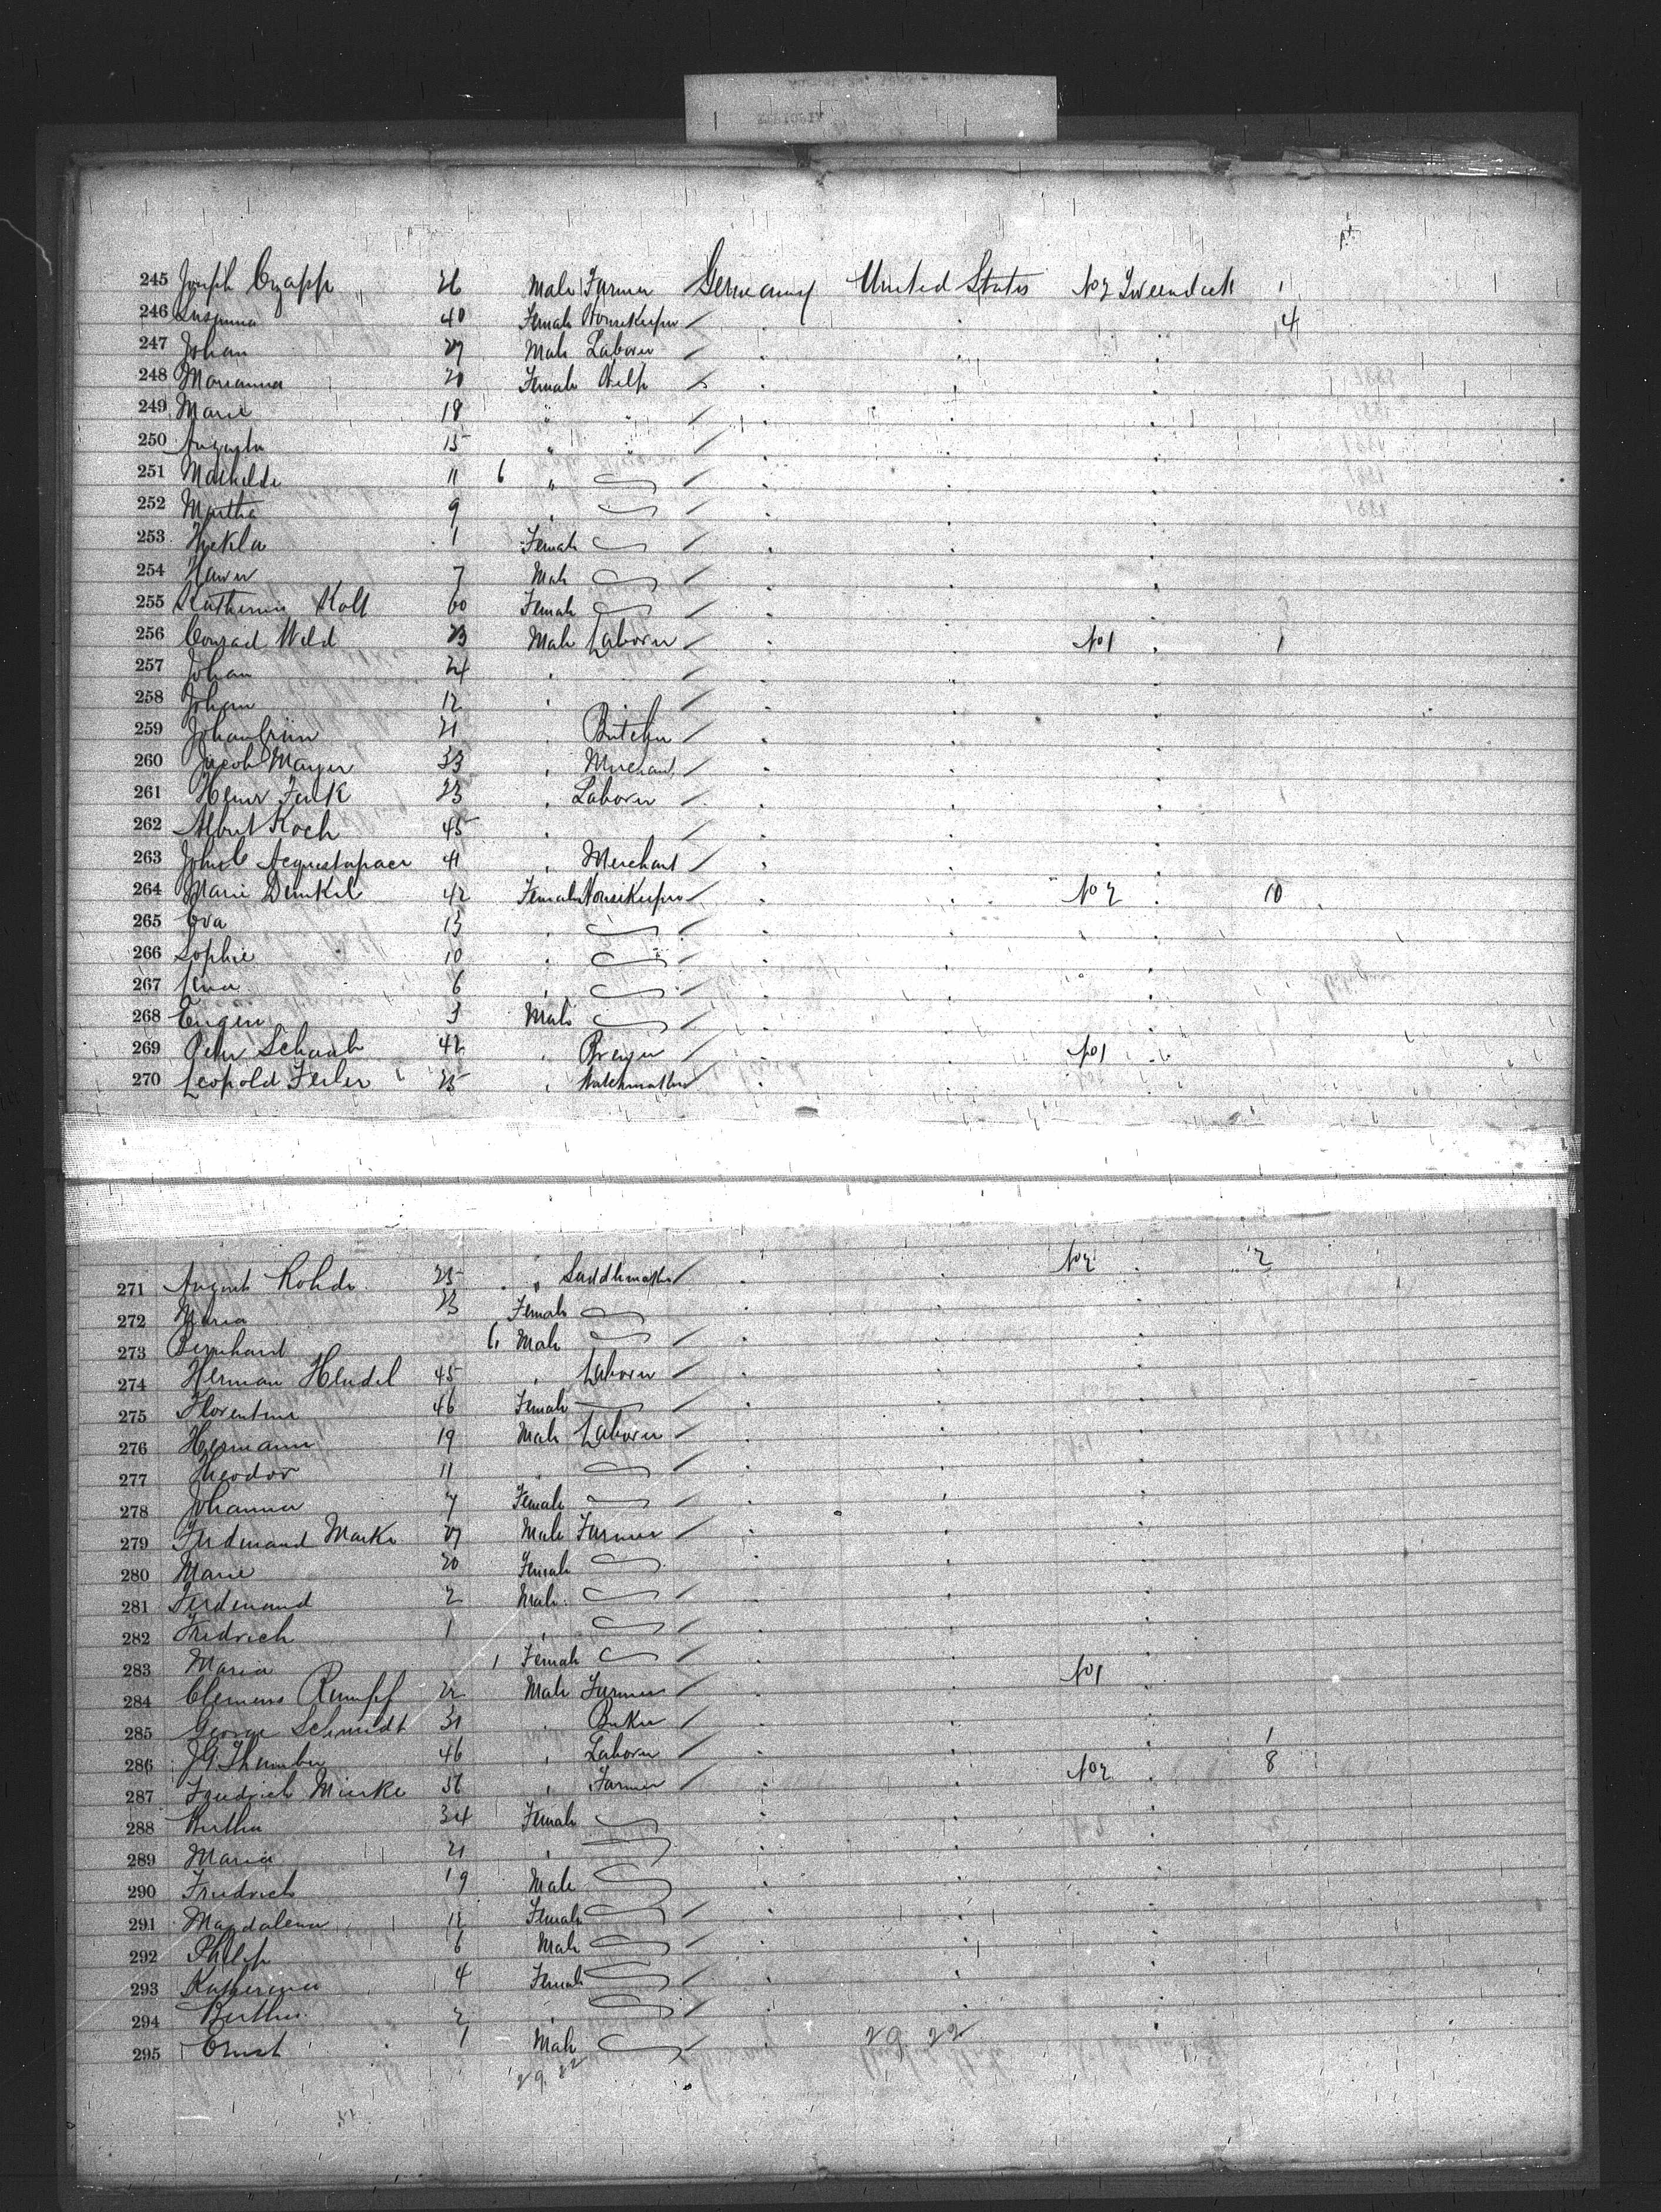 245 Joseph Czapp 26 Male Farmer Germany United States No 2 Tweendeck 1
246 Susanna 40 Female Housekeeper 4
247 Johan 27 Male Laborer
248 Marianna 20 Female Help
249 Marie 18 " "
250 Augusta 15 " "
251 Mathilde 11 6 "
252 Martha 9
253 Hekla 1 Female
254 7 Male
255 Katherina Kolb 60 Female
256 Conrad Weld 23 Male Laborer No 1 1
257 Johan 24
258 Johan 12
259 Johan Grün 21 Butcher
260 Jacob Mayer 33 Merchant
261 Henr Funk 23 Laborer
262 Albert Koch 45
263 John C 41 Merchant
264 Marie Dunkel 42 Female Housekeeper No 2 10
265 Eva 13
266 Sophie 10
267 Lena 6
268 Eugen 3 Male
269 Peter Schaab 42 Brewer No 1
270 Leopold Feiler 25 Watchmaker
271 August Rohde 25 " Saddlemaker No 2 2
272 Maria 23 Female
273 Bernhard 6 Male
274 Herman Hendel 45 Laborer
275 Florentine 46 Female
276 Hermann 19 Male Laborer
277 Theodor 11
278 Johanna 7 Female
279 Ferdinand Manke 27 Male Farmer
280 Marie 20 Female
281 Ferdinand 2 Male
282 Fredrich 1
283 Maria 1 Female
284 Clemens Rumpf 22 Male Farmer No 1
285 George Schmidt 31 Baker 1
286 J G Thumber 46 Laborer 8
287 Friedrich Mierke 36 Farmer No 2
288 Bertha 34 Female
289 Maria 21
290 Friedrich 19 Male
291 Magdalena 12 Female
292 Philip 6 Male
293 Katherina 4 Female
294 Bertha 2
295 Ernst 1 Male
29 22 29 22